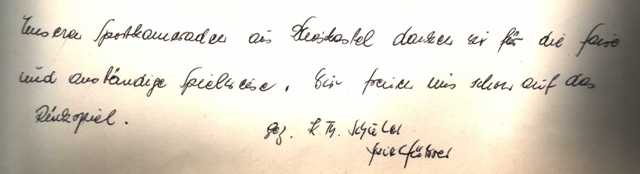 Unseren Sportkameraden aus Blieskastel danken wir für die faire
und anständige Spielweise. Wir freuen uns schon auf das
Rückspiel.
gez. K. Th. Schüler